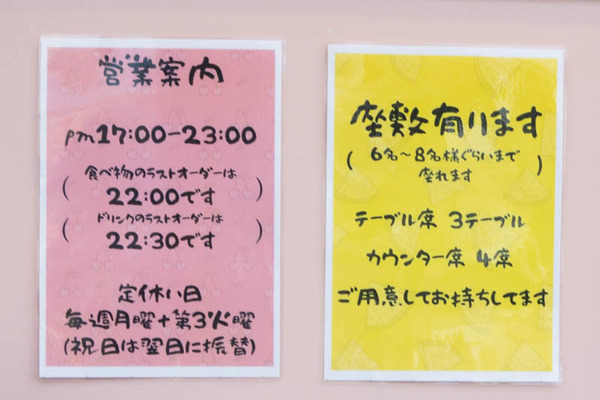 営業案内
pm17:00-23:00
(食べ物のラストオーダーは
22:00です)
(ドリンクのラストオーダーは
22:30です)
定休い日
毎週月曜+第3火曜
(祝日は翌日に振替)
座敷有ります
(6名~8名様ぐらいまで
座れます)
テーブル席 3テーブル
カウンター席 4席
ご用意してお持ちしてます